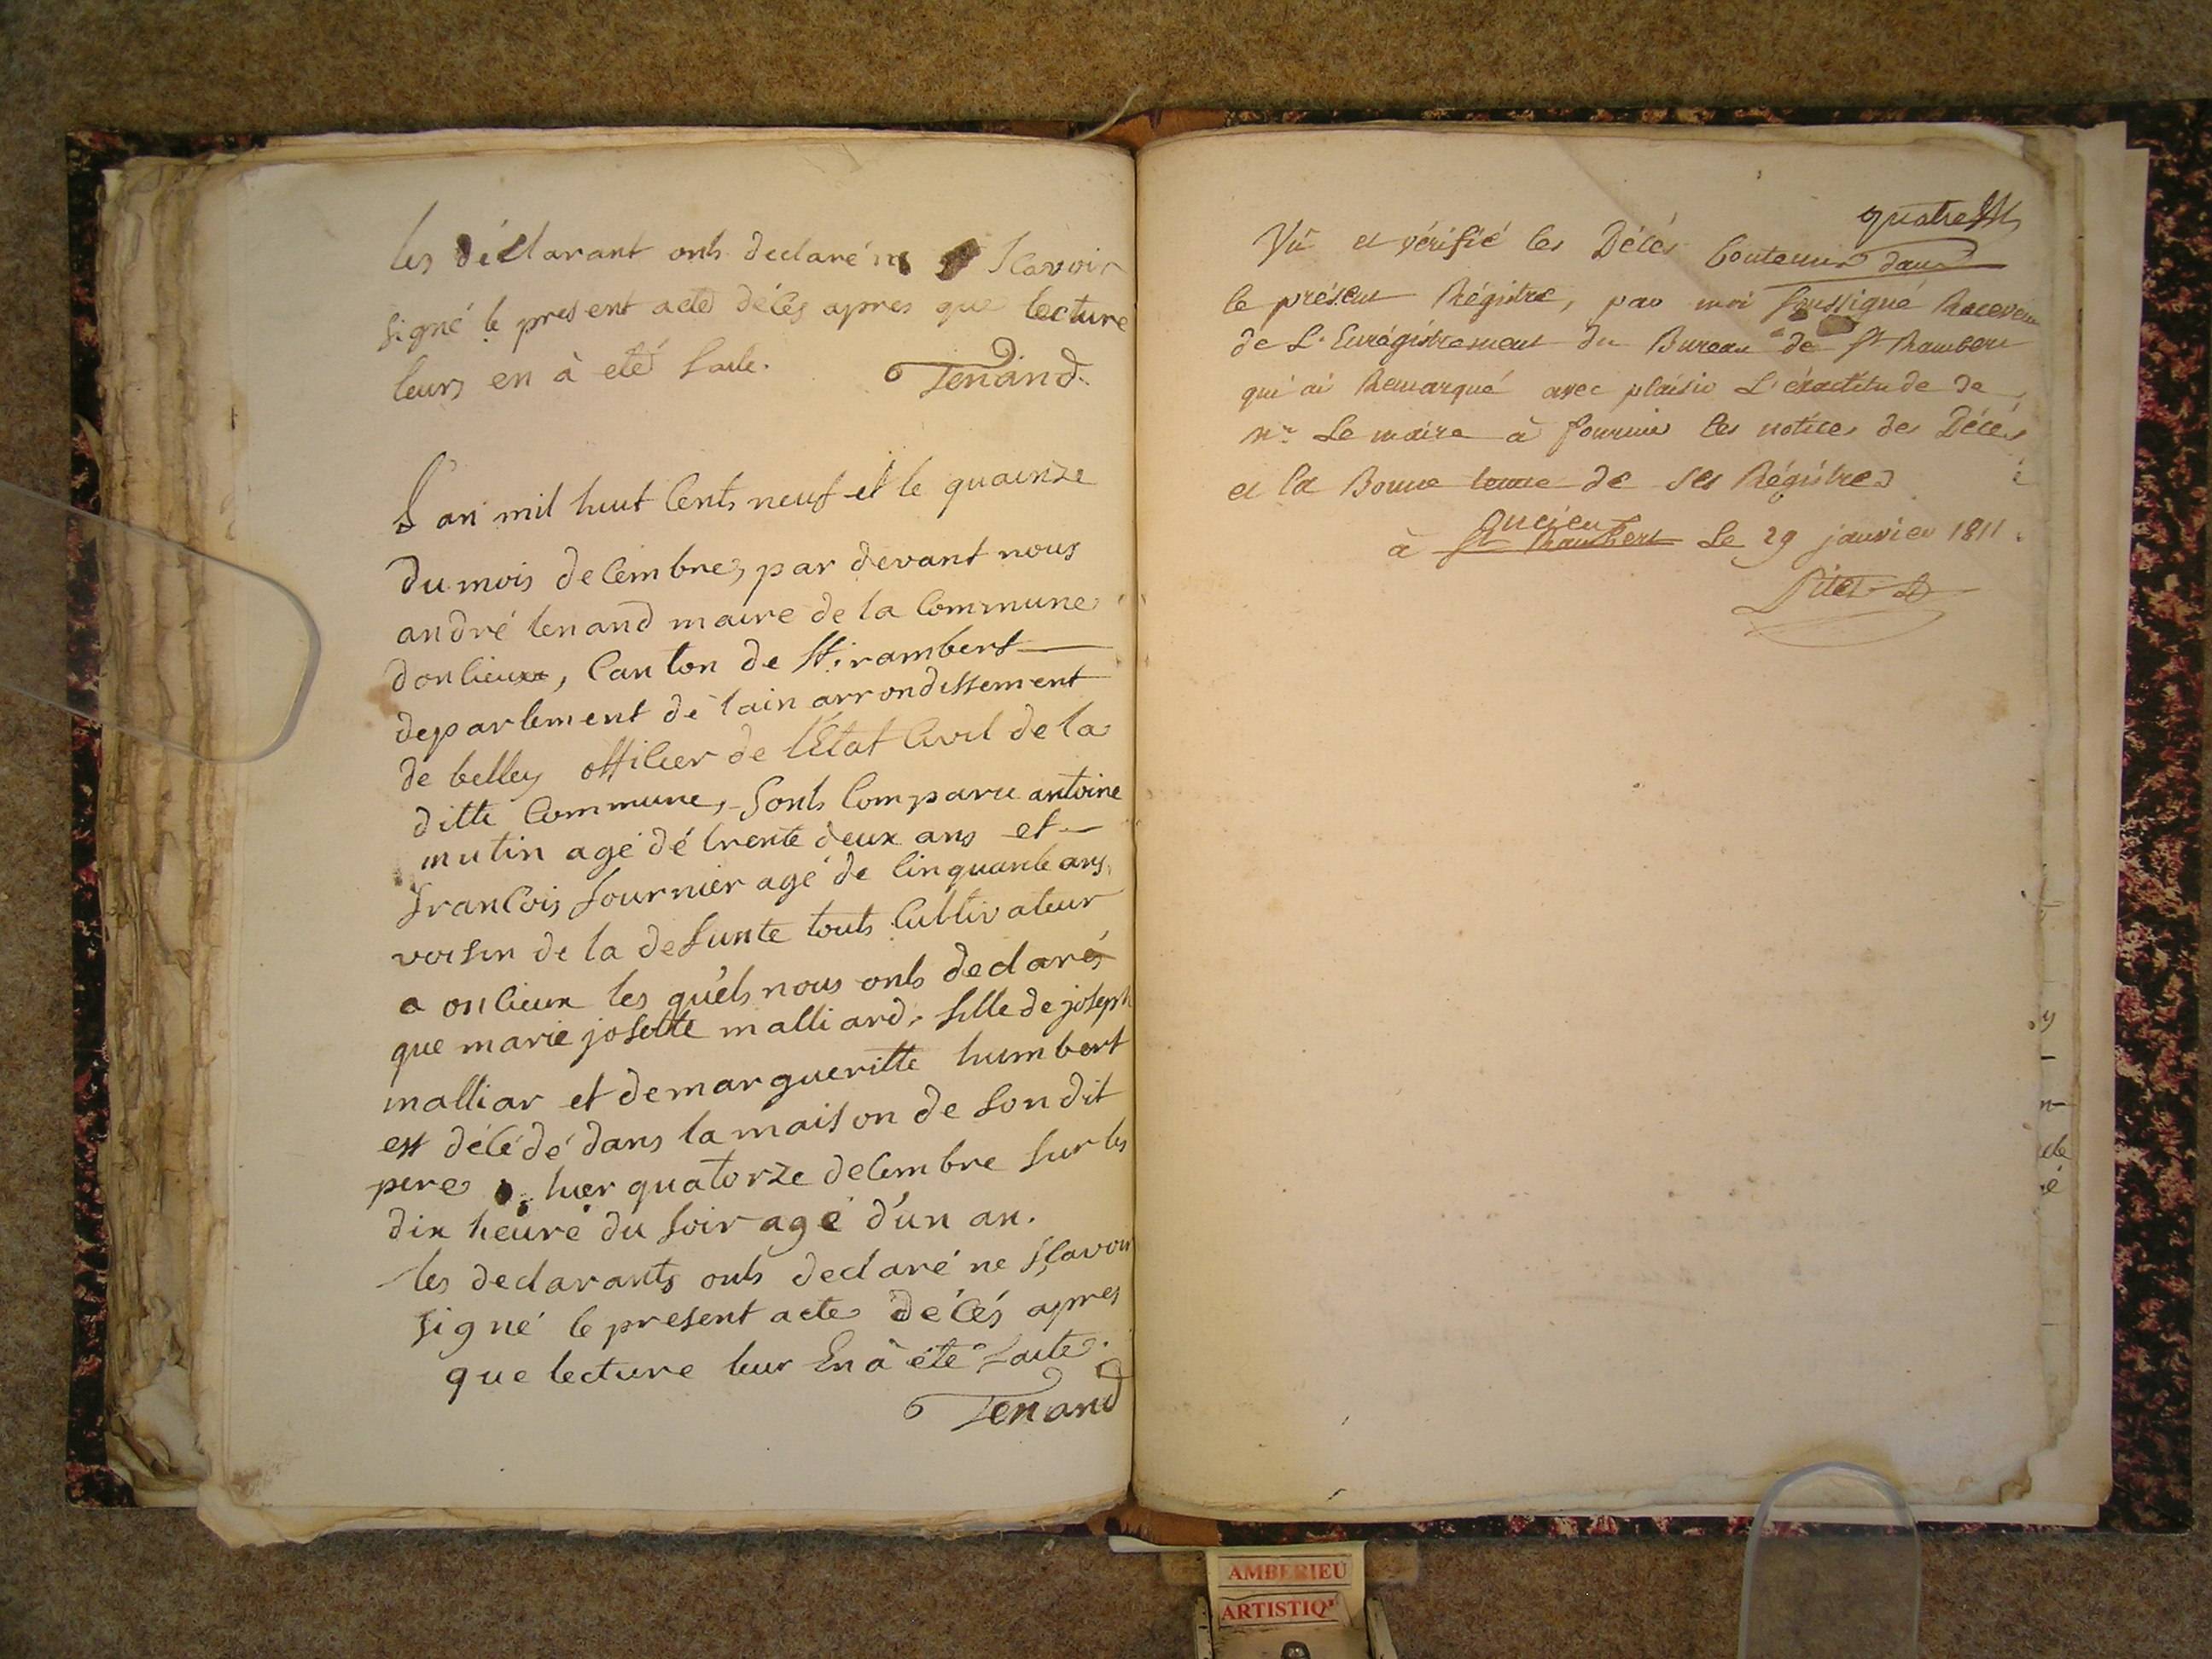 les déclarant onts declaré ne scavoir
signé le present acte décés apres que lecture
leurs en à eté faite.
Tenand
L'an mil huit cents neuf et le quainze
du mois decembre, par devant nous
andré tenand maire de la commune
donlieux, canton de St. rambert
departement de lain arrondissement
de belley officier de l'État civil de la
ditte commune, sonts comparu antoine
mutin agé dé trente deux ans et
francois fournier agé de cinquante ans,
voisin de la defunte touts cultivateur
a onlieux les quels nous onts declarés
que marie josette malliard, fille de joseph
malliar et de margueritte humbert
est décédé dans la maison de son dit
pere hier quatorze decembre sur les
dix heure du soir agé d'un an.
les declarants onts declaré ne sçavoir
signé le present acte décés apres
que lecture leur en à été faite.
Tenand
quatre
Vû et vérifié les Décès contenus dans
le présent Régistre, par moi soussigné Receveur
de L'Enrégistrement du Bureau de St Rambert
qui ai Remarqué avec plaisir L'éxactitude de
Mr. Le maire à fournir les notices des Décés
et la Bonne tenue de ses Régistres
à St Rambert Le 29 janvier 1811.
AMBERIEU
ARTISTIQ'